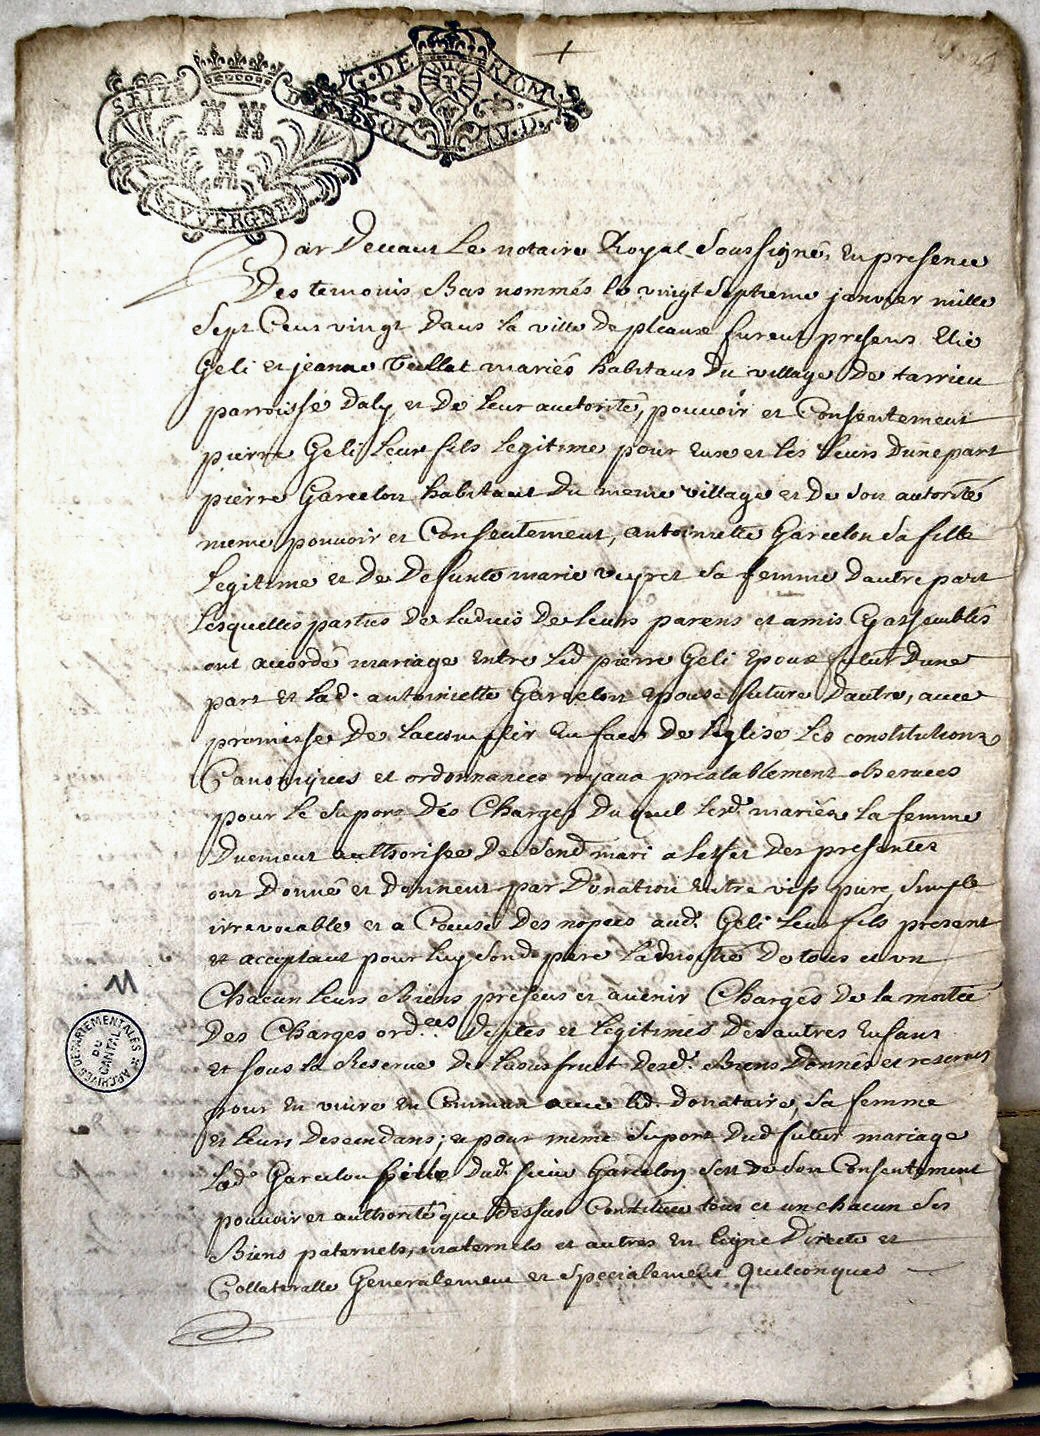 SEIZE D
AUVERGNE
G. DE RIOM
SOL IV. D.
Par Devant Le notaire Royal Soussigné, En presence
Des temoins Bas nommés le vingt Septieme janvier mille
Sept Cent vingt Dans la ville De pleaux furent presens Elie
Geli et jeanne mariés habitans Du village De tarrieu
parroisse Daly et De leur auctorité, pouvoir et Consentement
pierre Geli Leur fils legitime pour Eux et les leurs Dune part
pierre Garcelon habitant Du meme village et De son autorité
meme pouvoir et Consentement, antoinette Garcelon sa fille
Legitime et De Defunte marie veyret sa femme Dautre part
Lesquelles parties De Laduis De leurs parens et amis Cy assemblés
ont accordé mariage Entre led pierre Geli Epoux futur Dune
part et Lad. antoinette Garcelon Epouse future Dautre, avec
promisse De Laccomplir En face De leglise Les constitutions
Canoniques et ordonnances royaux prealablement observees
pour le suport Des Charges Duquel lesd. mariés La femme
Duement authorisee De Sond mari a leffet Des presentes
ont Donné et Donnent par Donation Entre vifs pure, simple
irrevocable et a Cause Des nopces aud. Geli leur fils present
et acceptant pour luy Sond pere La moitié De tous et un
Chacun leurs Biens presens et avenir Chargés De la moitié
Des Charges ord.res Deptes et legitimes Des autres Enfans
et sous la Reserve De Lousfruit Desd. Biens Donnés et reservés
pour En vivre En Commun avec led. Donataire, Sa femme
et leurs Descendans; et pour meme suport Dud futur mariage
Lad. Garcelon fille Dud. pierre Garcelon De Son Consentement
pouvoir et authorité que Dessus Constitue tous et un chacun Ses
Biens paternels, maternels et autres En ligne Directe et
Collateralle Generalement et specialement quelconques
ARCHIVES DEPARTEMENTALES DU CANTAL